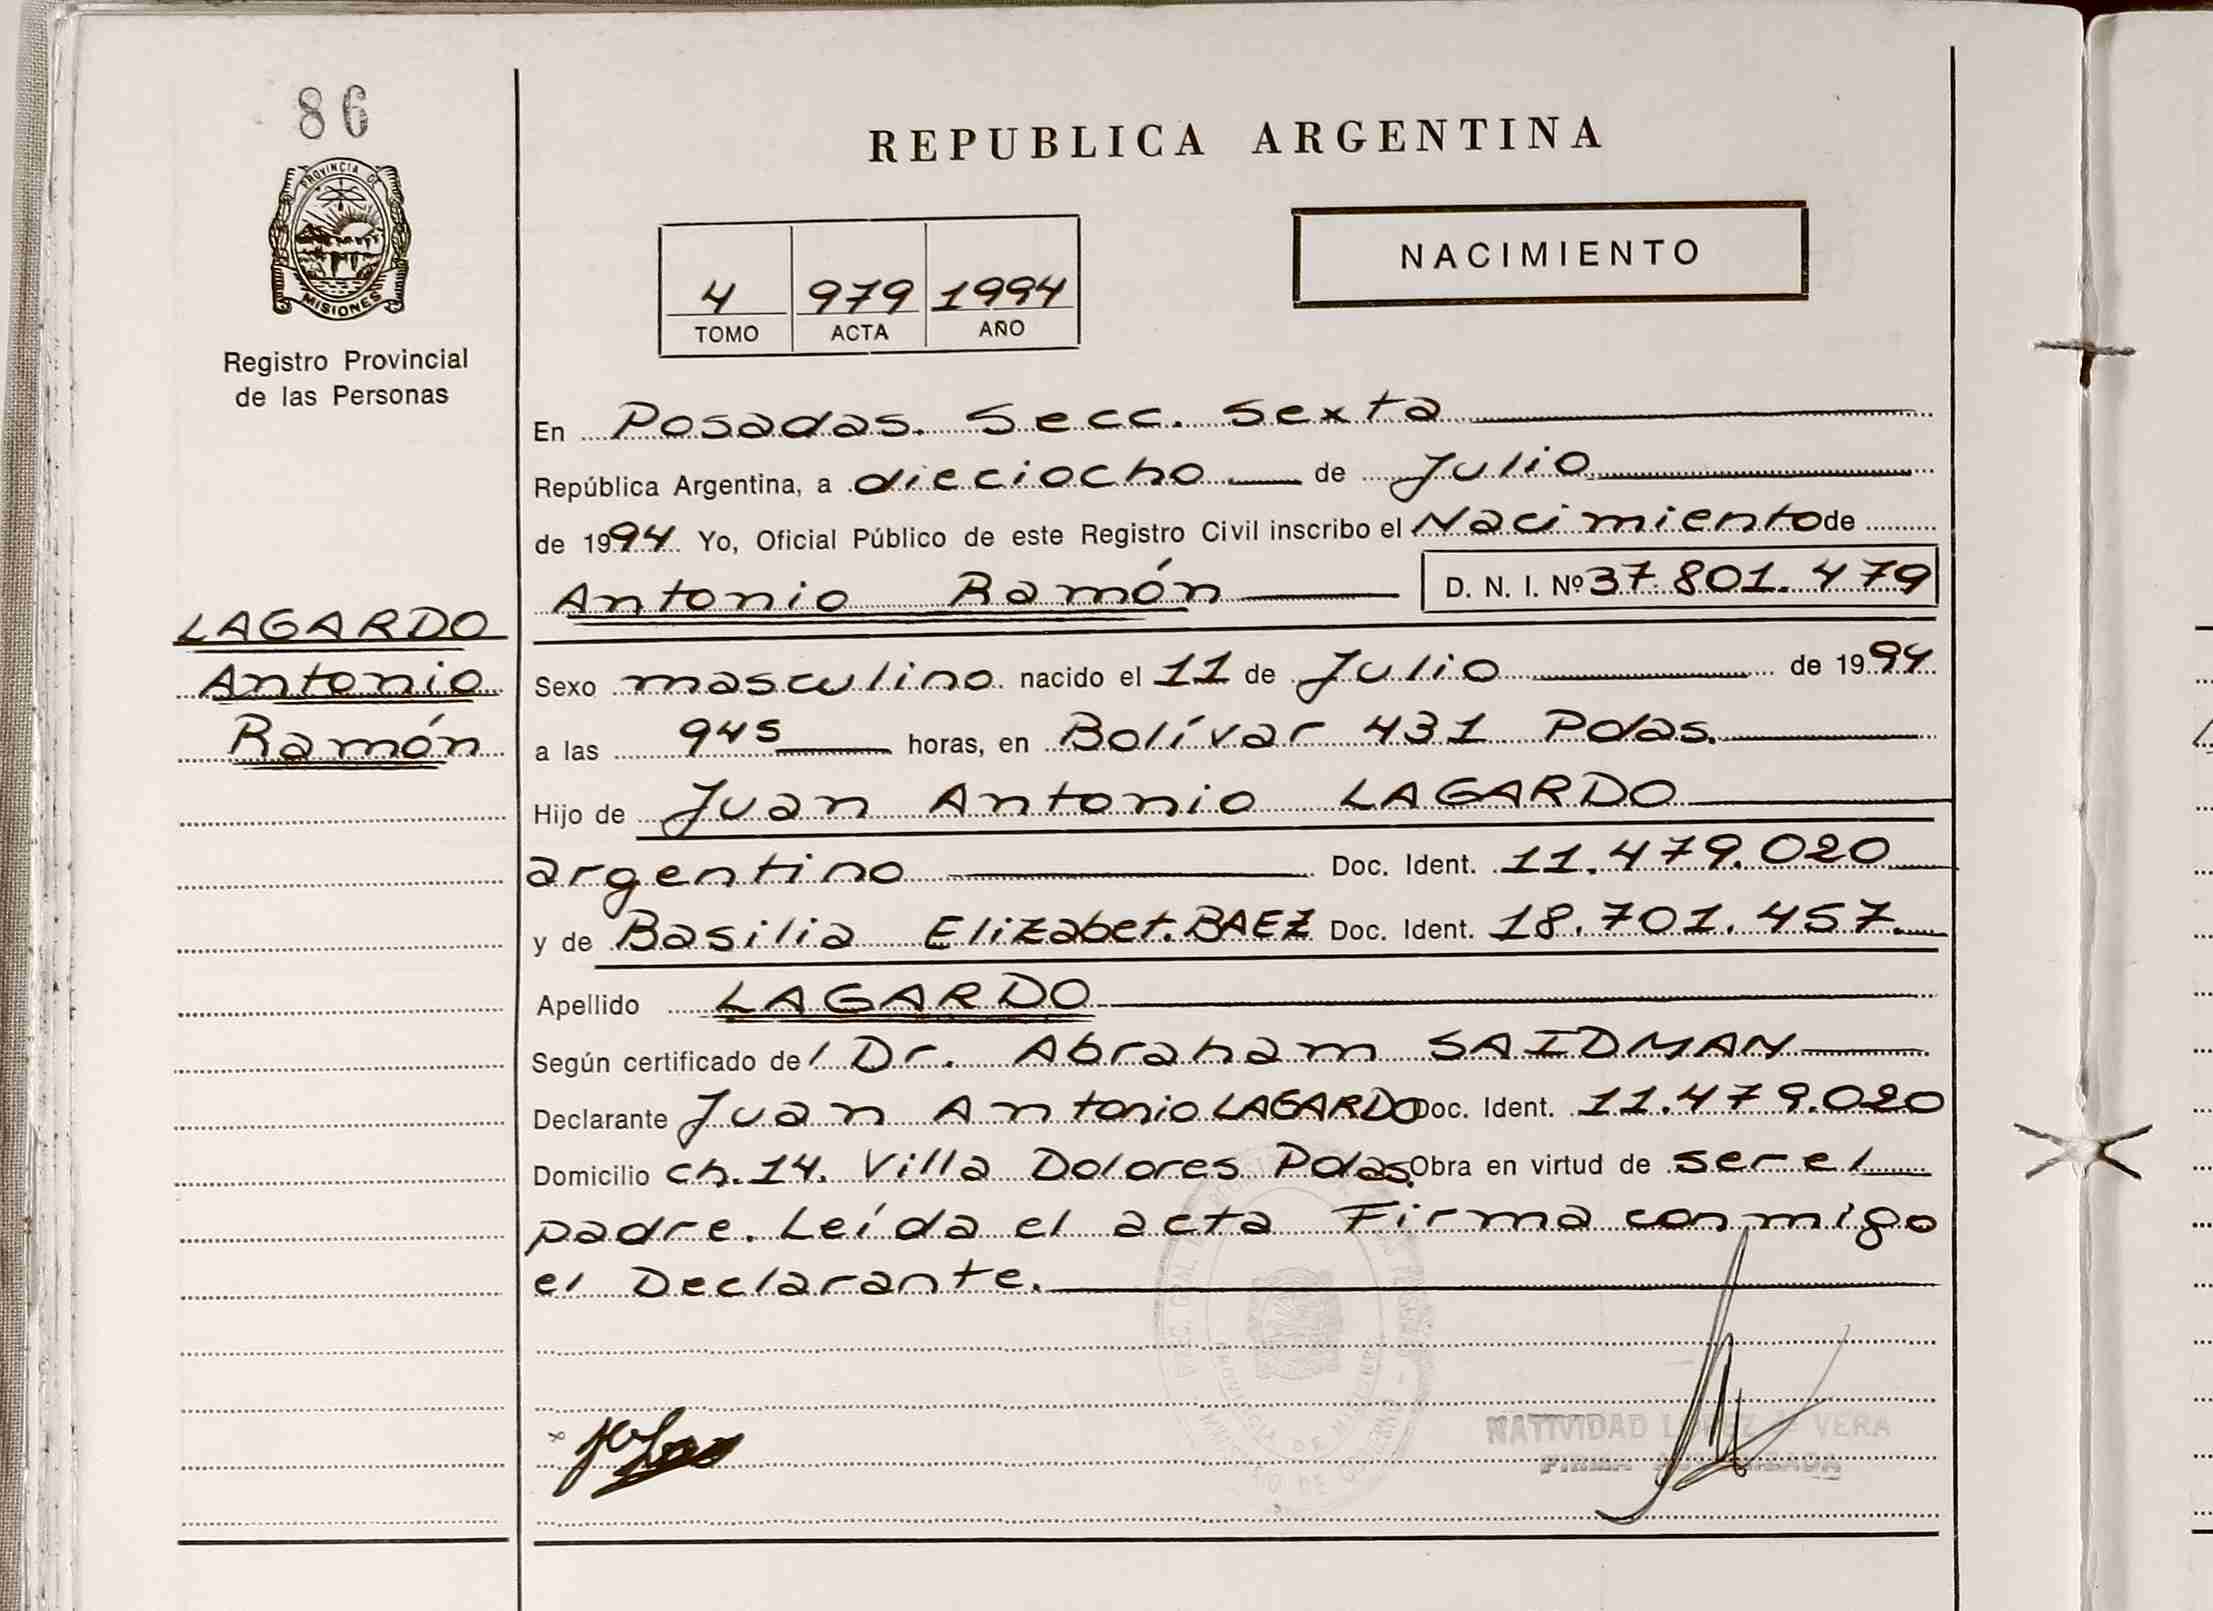 86
PROVINCIA DE
MISIONES
Registro Provincial
de las Personas
REPUBLICA ARGENTINA
NACIMIENTO
4 979 1994
TOMO ACTA AÑO
En Posadas. Secc. Sexta
República Argentina, a dieciocho de Julio
de 1994 Yo, Oficial Público de este Registro Civil inscribo el Nacimiento de
Antonio Ramón D. N. I. Nº 37.801.479
LAGARDO
Antonio
Ramón
Sexo masculino nacido el 11 de Julio de 1994
a las 945 horas, en Bolívar 431 Pdas.
Hijo de Juan Antonio LAGARDO
argentino Doc. Ident. 11.479.020
y de Basilia Elizabet. BAEZ Doc. Ident. 18.701.457.
Apellido LAGARDO
Según certificado del Dr. Abraham SAIDMAN
Declarante Juan Antonio LAGARDO Doc. Ident. 11.479.020
Domicilio ch. 14. Villa Dolores Pdas. Obra en virtud de ser el
padre. Leída el acta Firma conmigo
el Declarante.
NATIVIDAD LOPEZ de VERA
FIRMA AUTORIZADA